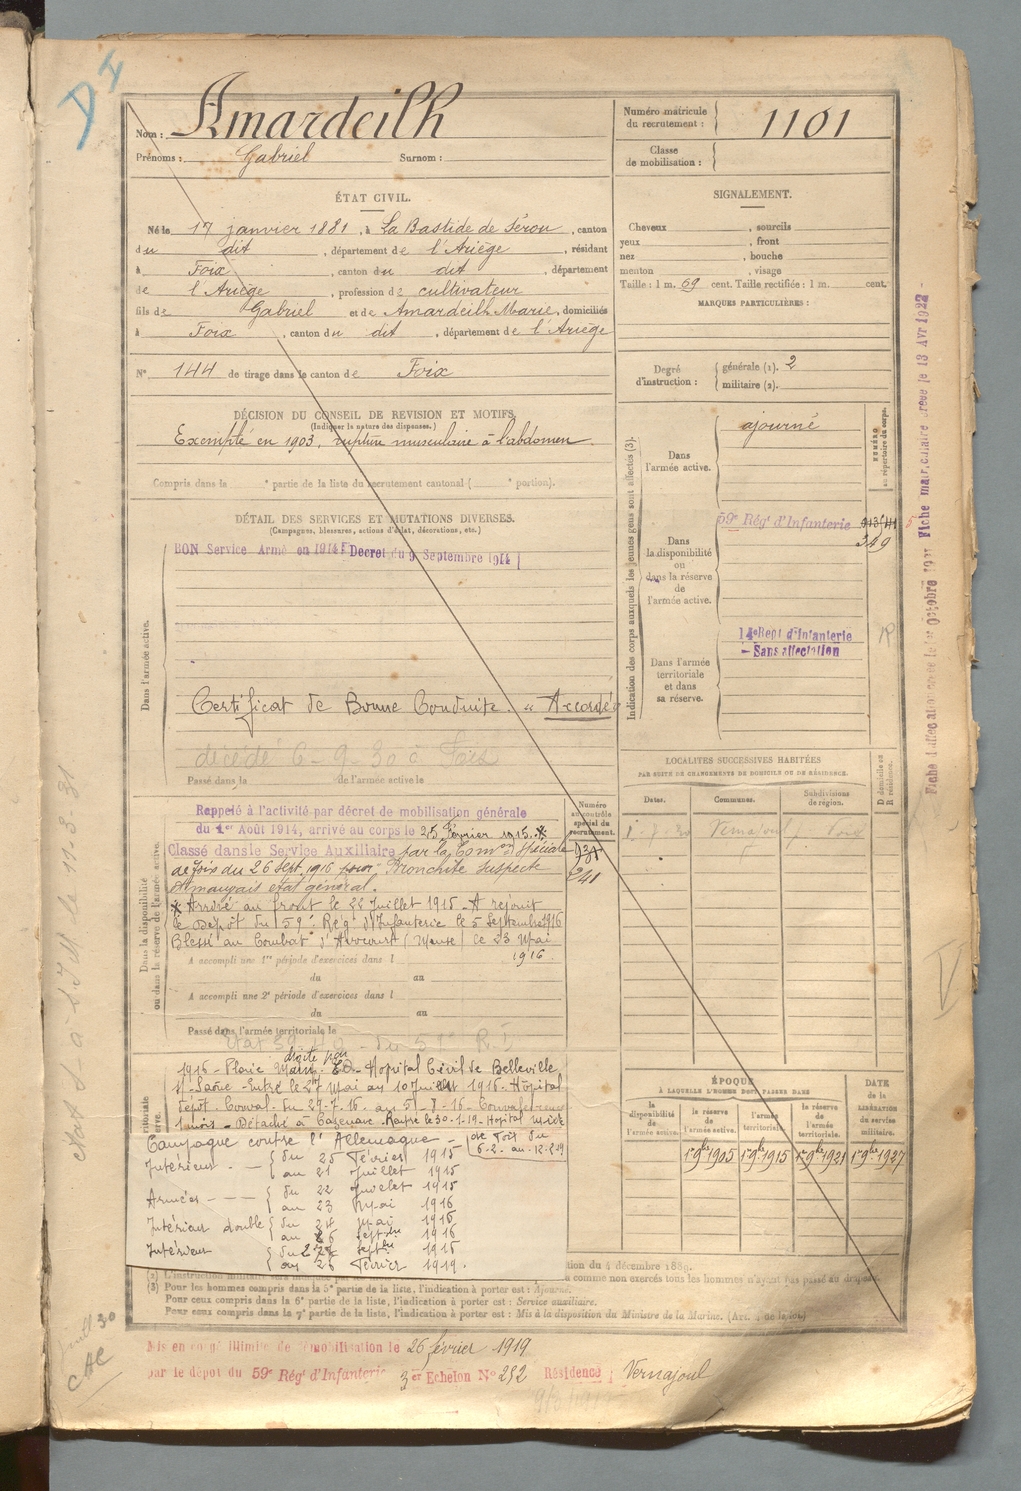 Nom : Amardeilh
Prénoms : Gabriel Surnom :
Numéro matricule du recrutement : 1101
Classe de mobilisation :
ÉTAT CIVIL.
Né le 17 janvier 1881, à La Bastide de Sérou, canton
du dit, département de l'Ariège, résidant
à Foix, canton du dit, département
de l'Ariège, profession de cultivateur
fils de Gabriel et de Amardeilh Marie, domiciliés
à Foix, canton du dit, département de l'Ariège
N° 144 de tirage dans le canton de Foix
SIGNALEMENT.
Cheveux , sourcils
yeux , front
nez , bouche
menton , visage
Taille : 1 m. 69 cent. Taille rectifiée : 1 m. cent.
MARQUES PARTICULIÈRES :
Degré d'instruction : générale (1). 2
militaire (2).
DÉCISION DU CONSEIL DE REVISION ET MOTIFS.
(Indiquer la nature des dispenses.)
Exempté en 1903, rupture musculaire à l'abdomen
Compris dans la e partie de la liste du recrutement cantonal ( e portion).
DÉTAIL DES SERVICES ET MUTATIONS DIVERSES.
(Campagnes, blessures, actions d'éclat, décorations, etc.)
BON Service Armé en 1914 Decret du 9 Septembre 1914
Dans l'armée active.
Certificat de Bonne Conduite. « Accordé
décédé 6-9-30 à
Passé dans la de l'armée active le
Indication des corps auxquels les jeunes gens sont affectés (3).
NUMÉRO au répertoire du corps.
Dans l'armée active.
ajourné
Dans la disponibilité ou dans la réserve de l'armée active.
59e Régt d'Infanterie
349
Dans l'armée territoriale et dans sa réserve.
14e Regt d'Infanterie
- Sans affectation
LOCALITÉS SUCCESSIVES HABITÉES
PAR SUITE DE CHANGEMENTS DE DOMICILE OU DE RÉSIDENCE.
Dates. Communes. Subdivisions de région.
D domicile ou R résidence.
Vernajoul Foix
Dans la disponibilité ou dans la réserve de l'armée active.
Numéro au contrôle spécial du recrutement.
Rappelé à l'activité par décret de mobilisation générale
du 1er Août 1914, arrivé au corps le 25 Février 1915. *
Classé dans le Service Auxiliaire par la Comon Spéciale
de Foix du 26 Sept. 1916 pour Bronchite suspecte
et mauvais état général.
241
* Arrivé au front le 22 Juillet 1915 - A rejoint
le Dépôt du 59e Rég. d'Infanterie le 5 Septembre 1916
Blessé au Combat d'Avocourt (Meuse) le 23 Mai
1916.
A accompli une 1re période d'exercices dans l
du au
A accompli une 2e période d'exercices dans l
du au
Passé dans l'armée territoriale le
1916 - Plaie droite par - Hopital Civil de Belleville
s/-Saône - Entré le 27 Mai au 10 Juillet 1916 - Hôpital
1 mois - Détaché à - Rentré le 30-1-19 - Hopital mixte
de Foix du
6-2- au
Campagne contre l'Allemagne -
Intérieur - - du 25 Février 1915
au 21 Juillet 1915
Armées - - - du 22 Juillet 1915
au 23 Mai 1916
Intérieur double du 24 Mai 1916
au Septbre 1916
Intérieur du Septbre
au 26 Février 1919.
ÉPOQUE
À LAQUELLE L'HOMME DOIT PASSER DANS
DATE de la LIBÉRATION du service militaire.
la disponibilité de l'armée active.
la réserve de l'armée active.
l'armée territoriale.
la réserve de l'armée territoriale.
1er 9bre 1905 1er 9bre 1915 1er 9bre 1921 1er 9bre 1927
(3) Pour les hommes compris dans la 5e partie de la liste, l'indication à porter est : Ajourné.
Pour ceux compris dans la 6e partie de la liste, l'indication à porter est : Service auxiliaire.
Pour ceux compris dans la 7e partie de la liste, l'indication à porter est : Mis à la disposition du Ministre de la Marine.
Mis en congé illimité de démobilisation le 26 février 1919
par le dépôt du 59e Régt d'Infanterie 3er Echelon N° 252 Résidence Vernajoul
Fiche matriculaire créée le 13 Avr 1922